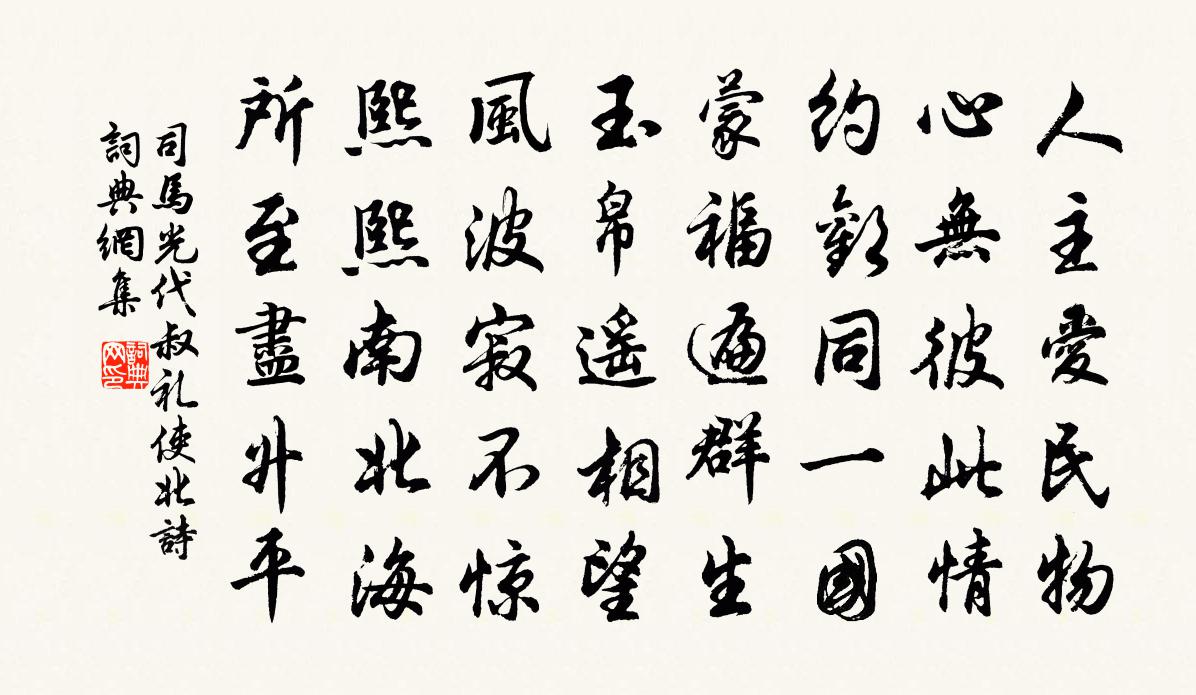 人主愛民物
心無彼此情
約歡同一國
蒙福遍群生
玉帛遥相望
風波寂不惊
熙熙南北海
所至盡升平
司馬光代叔礼使北詩
詞典網集
詞典网印